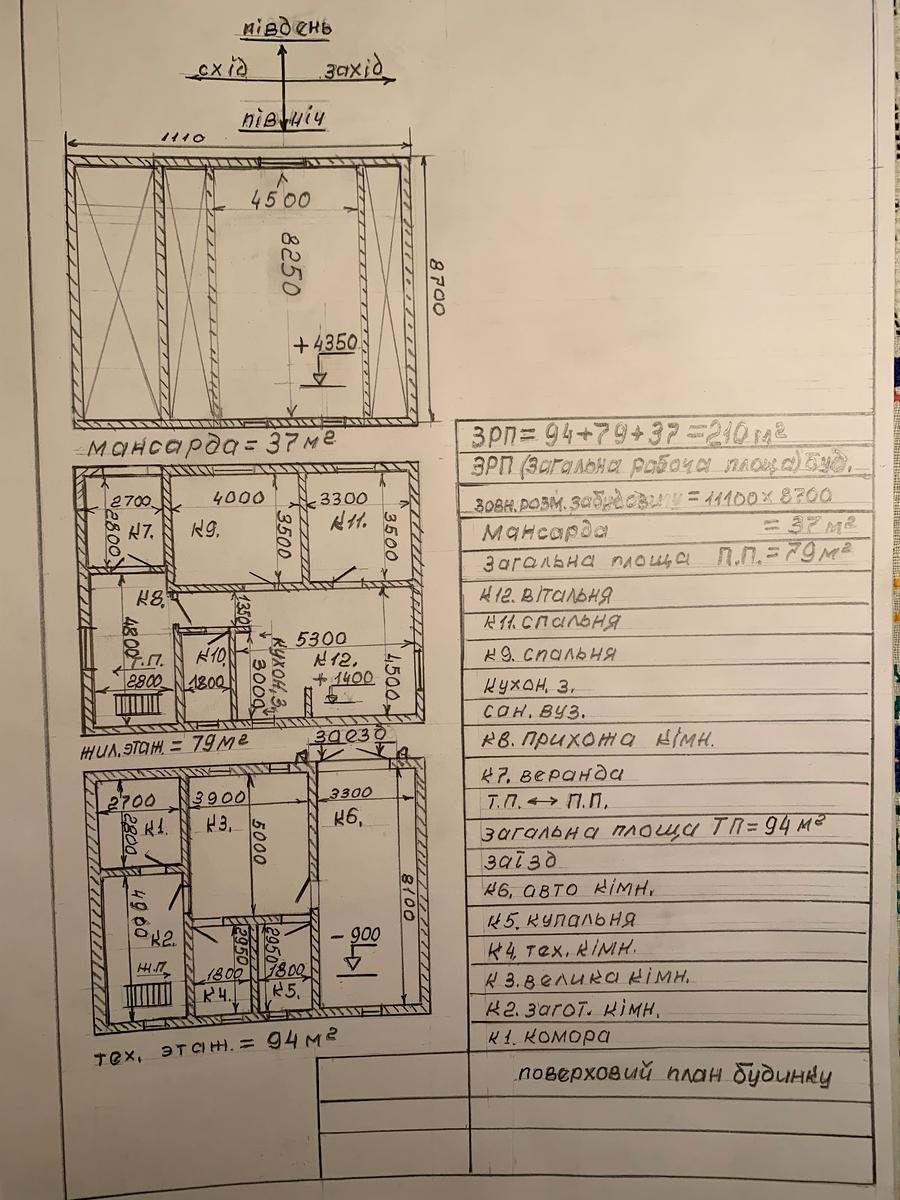 південь
схід захід
північ
1110
4500
8250
8700
+4350
мансарда = 37 м²
2700 4000 3300
2800 К7. К9. 3500 К11. 3500
К8. 1350
4800 5300
Т.П. К10 кухон.з. К12. 4500
2800 1800 3000 +1400
жил.этаж. = 79 м²
30230
2700 3900 3300
2800 К1. К3. К6.
5000
4900 8100
К2. 2950 2950 -900
ж.п. 1800 1800
К4. К5.
тех. этаж. = 94 м²
ЗРП = 94+79+37 = 210 м²
ЗРП (Загальна рабоча площа) буд.
зовн. розм. забудови = 11100 x 8700
Мансарда = 37 м²
Загальна площа П.П. = 79 м²
К12. вітальня
К11. спальня
К9. спальня
кухон. з.
сан. вуз.
К8. прихожа кімн.
К7. веранда
Т.П. ↔ П.П.
загальна площа ТП = 94 м²
заїзд
К6. авто кімн.
К5. купальня
К4. тех. кімн.
К3. велика кімн.
К2. загот. кімн.
К1. комора
поверховий план будинку